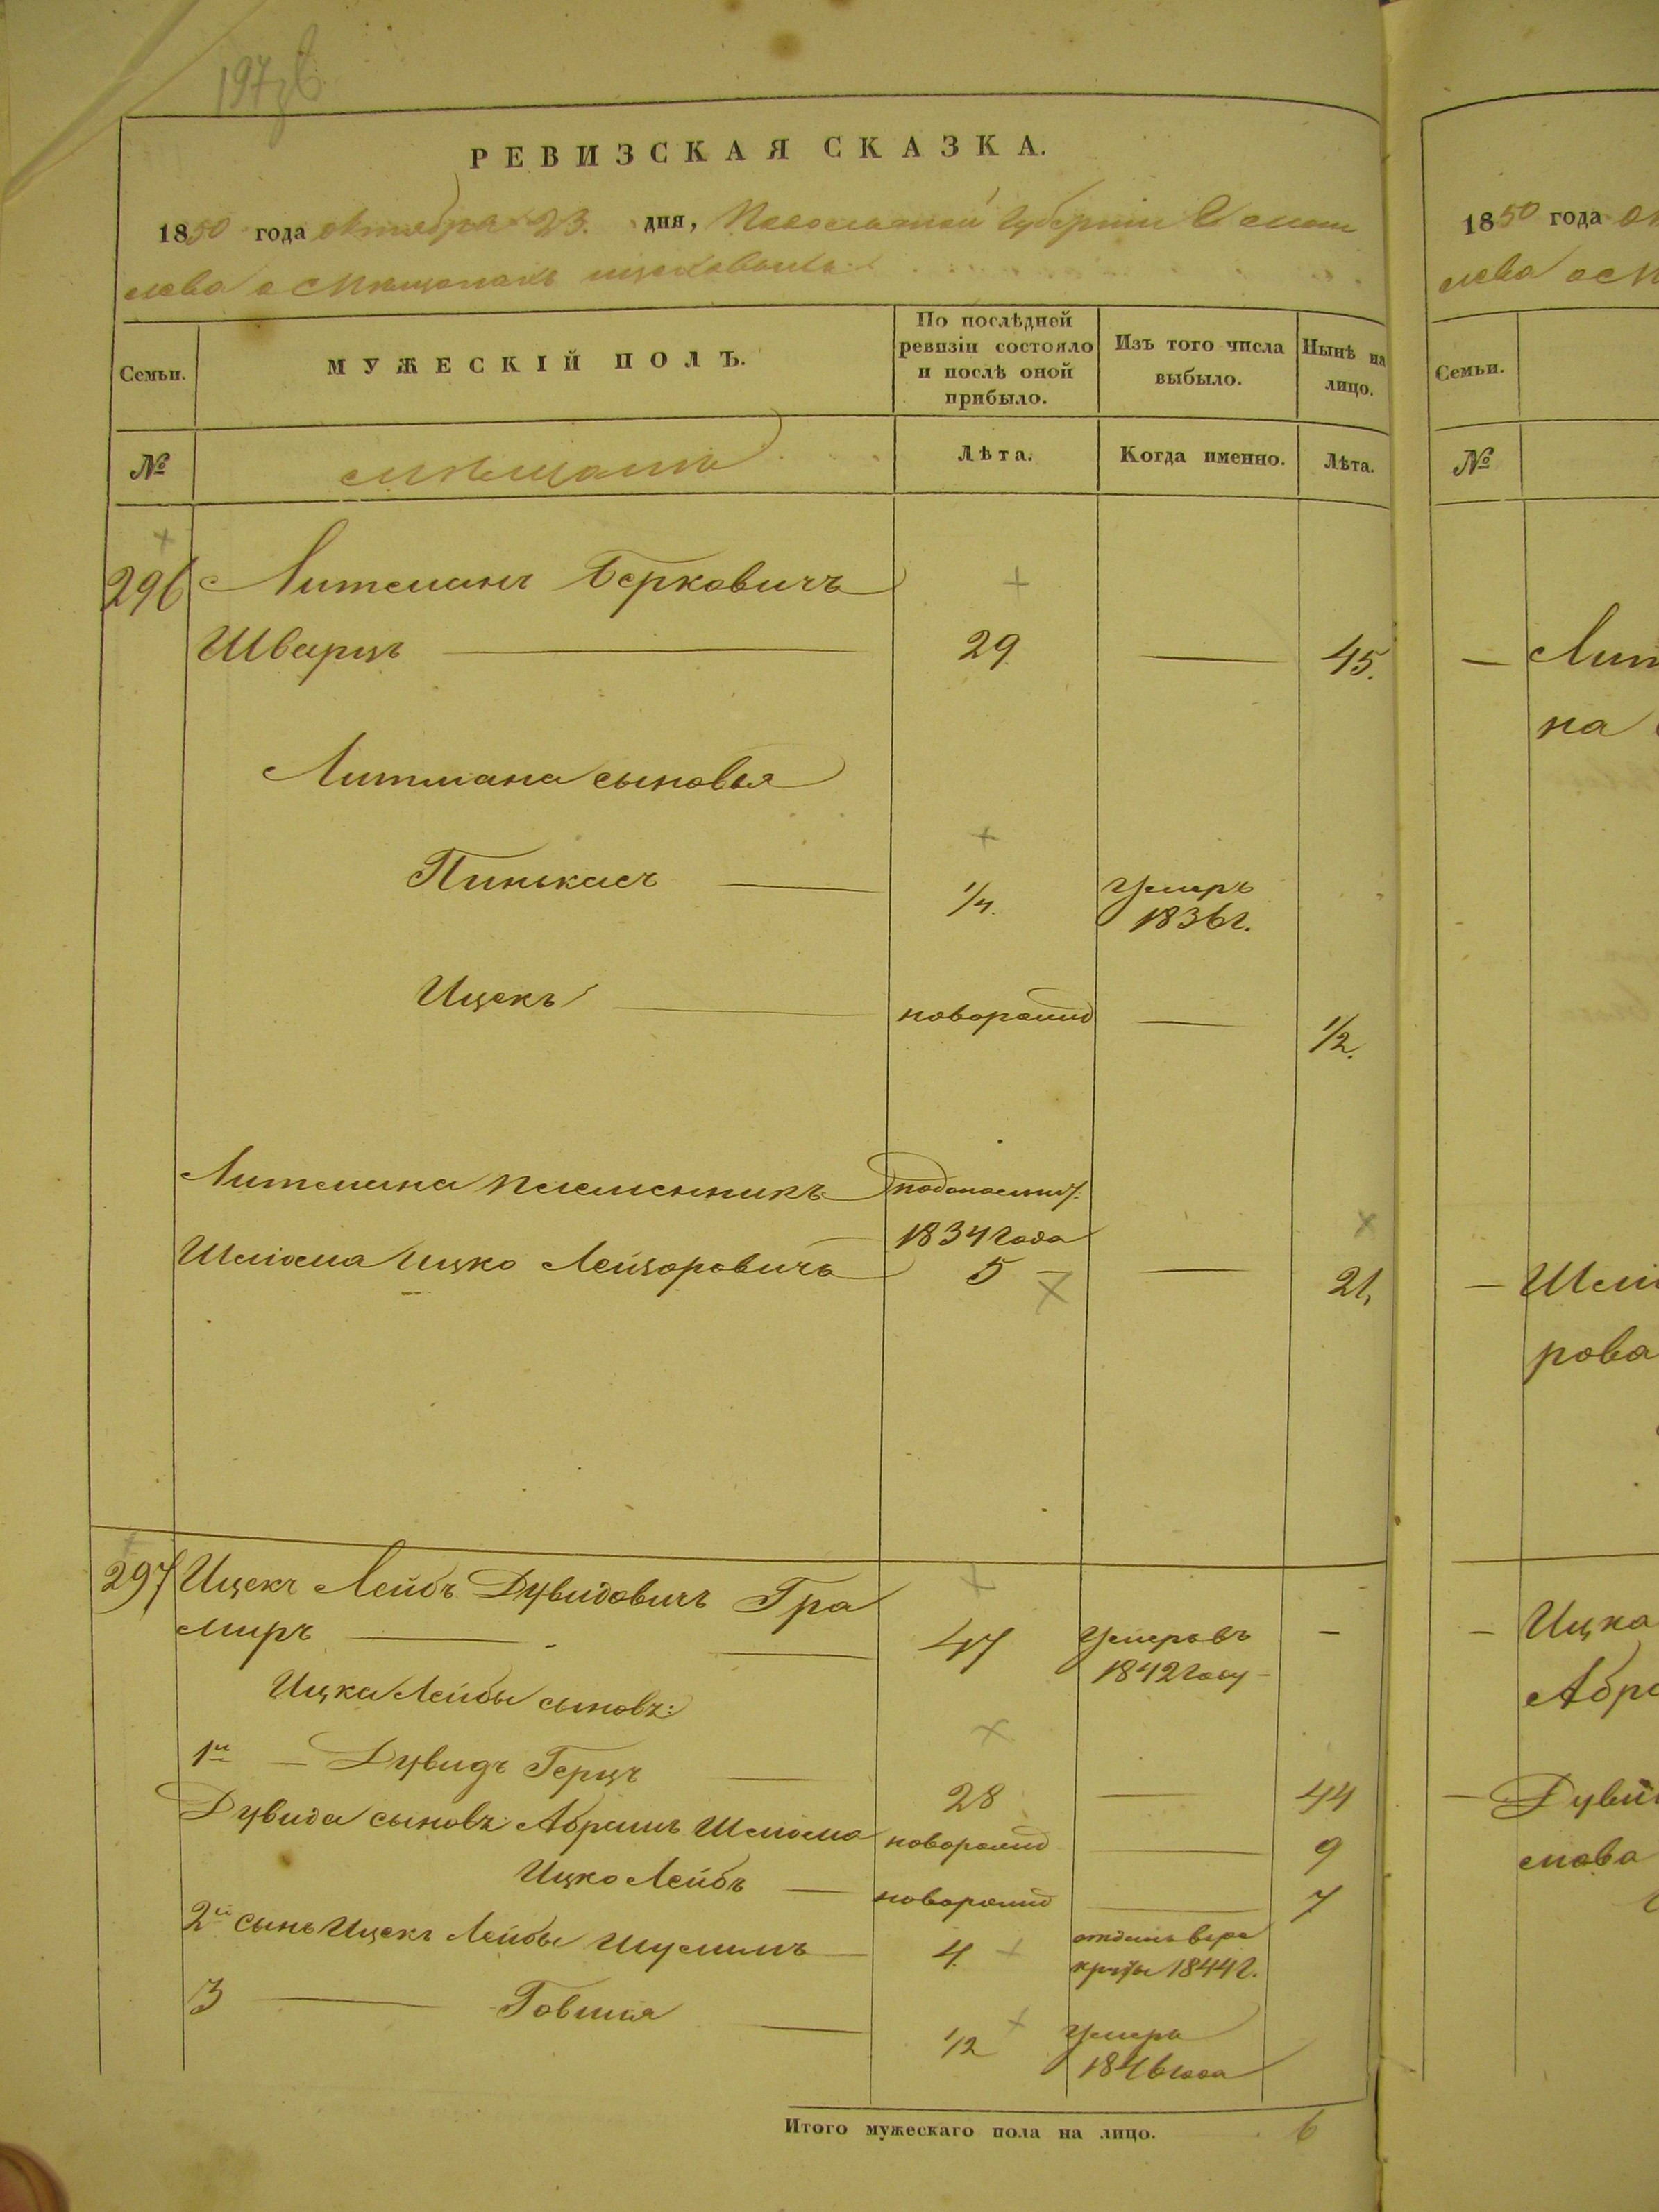 197 об
РЕВИЗСКАЯ СКАЗКА.
1850 года октября 23. дня, Подольской Губернии
лева о мещанахъ
Семьи.
МУЖЕСКІЙ ПОЛЪ.
По послѣдней ревизіи состояло и послѣ оной прибыло.
Изъ того числа выбыло.
Нынѣ на лицо.
№
мѣщане
Лѣта.
Когда именно.
Лѣта.
296 Литманъ Берковичъ
Шварцъ — 29. — 45.
Литмана сыновья
Пинькасъ — 1/4. умеръ
1836 г.
Ицекъ — новорожд — 1/2.
Литмана племенникъ
1834 года
Шліома Ицко Лейзоровичъ 5 — 21,
297 Ицекъ Лейбъ Дувидовичъ Гра
миръ — 47 умеръ въ —
1842 году —
Ицка Лейбы сыновъ:
1й — Дувидъ Герцъ — 28 — 44
Дувида сыновъ Абрамъ Шліома новорожд — 9
Ицко Лейбъ — новорожд — 7
2й сынъ Ицекъ Лейбы Шулимъ — 4. отданъ в ре
круты 1844 г.
3 — Говшия — 1/2 умеръ
1846 года
Итого мужескаго пола на лицо. 6
1850 года
лева о
Семьи.
№
— Лит
на
— Шлі
рова
— Ицка
Абра
— Дуви
мова